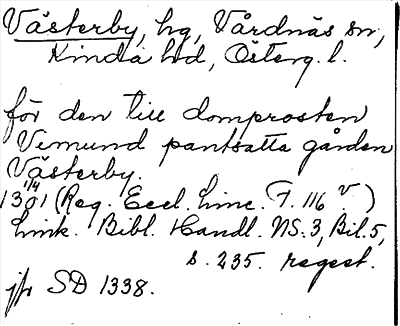 Västerby, hg, Vårdnäs sn,
Kinda hd, Österg. l.
för den till domprosten
Vemund pantsatta gården
Västerby.
1/4
1301 (Reg. Eccl. Linc. F. 116 v.)
Link. Bibl. Handl. NS. 3, Bil. 5,
s. 235. regest.
jfr SD 1338.